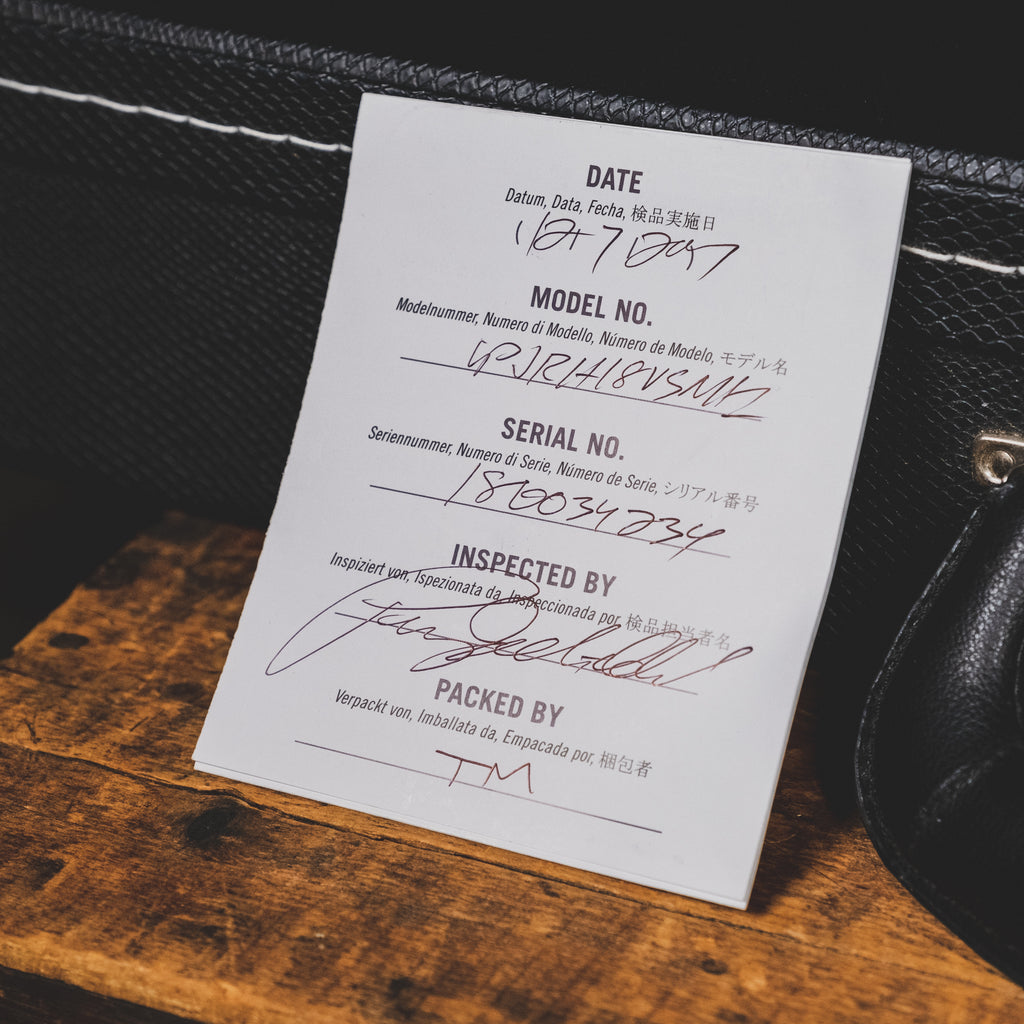 DATE
Datum, Data, Fecha, 検品実施日
MODEL NO.
Modelnummer, Numero di Modello, Número de Modelo, モデル名
SERIAL NO.
Seriennummer, Numero di Serie, Número de Serie, シリアル番号
180034234
INSPECTED BY
Inspiziert von, Ispezionata da, Inspeccionada por, 検品担当者名
PACKED BY
Verpackt von, Imballata da, Empacada por, 梱包者
TM